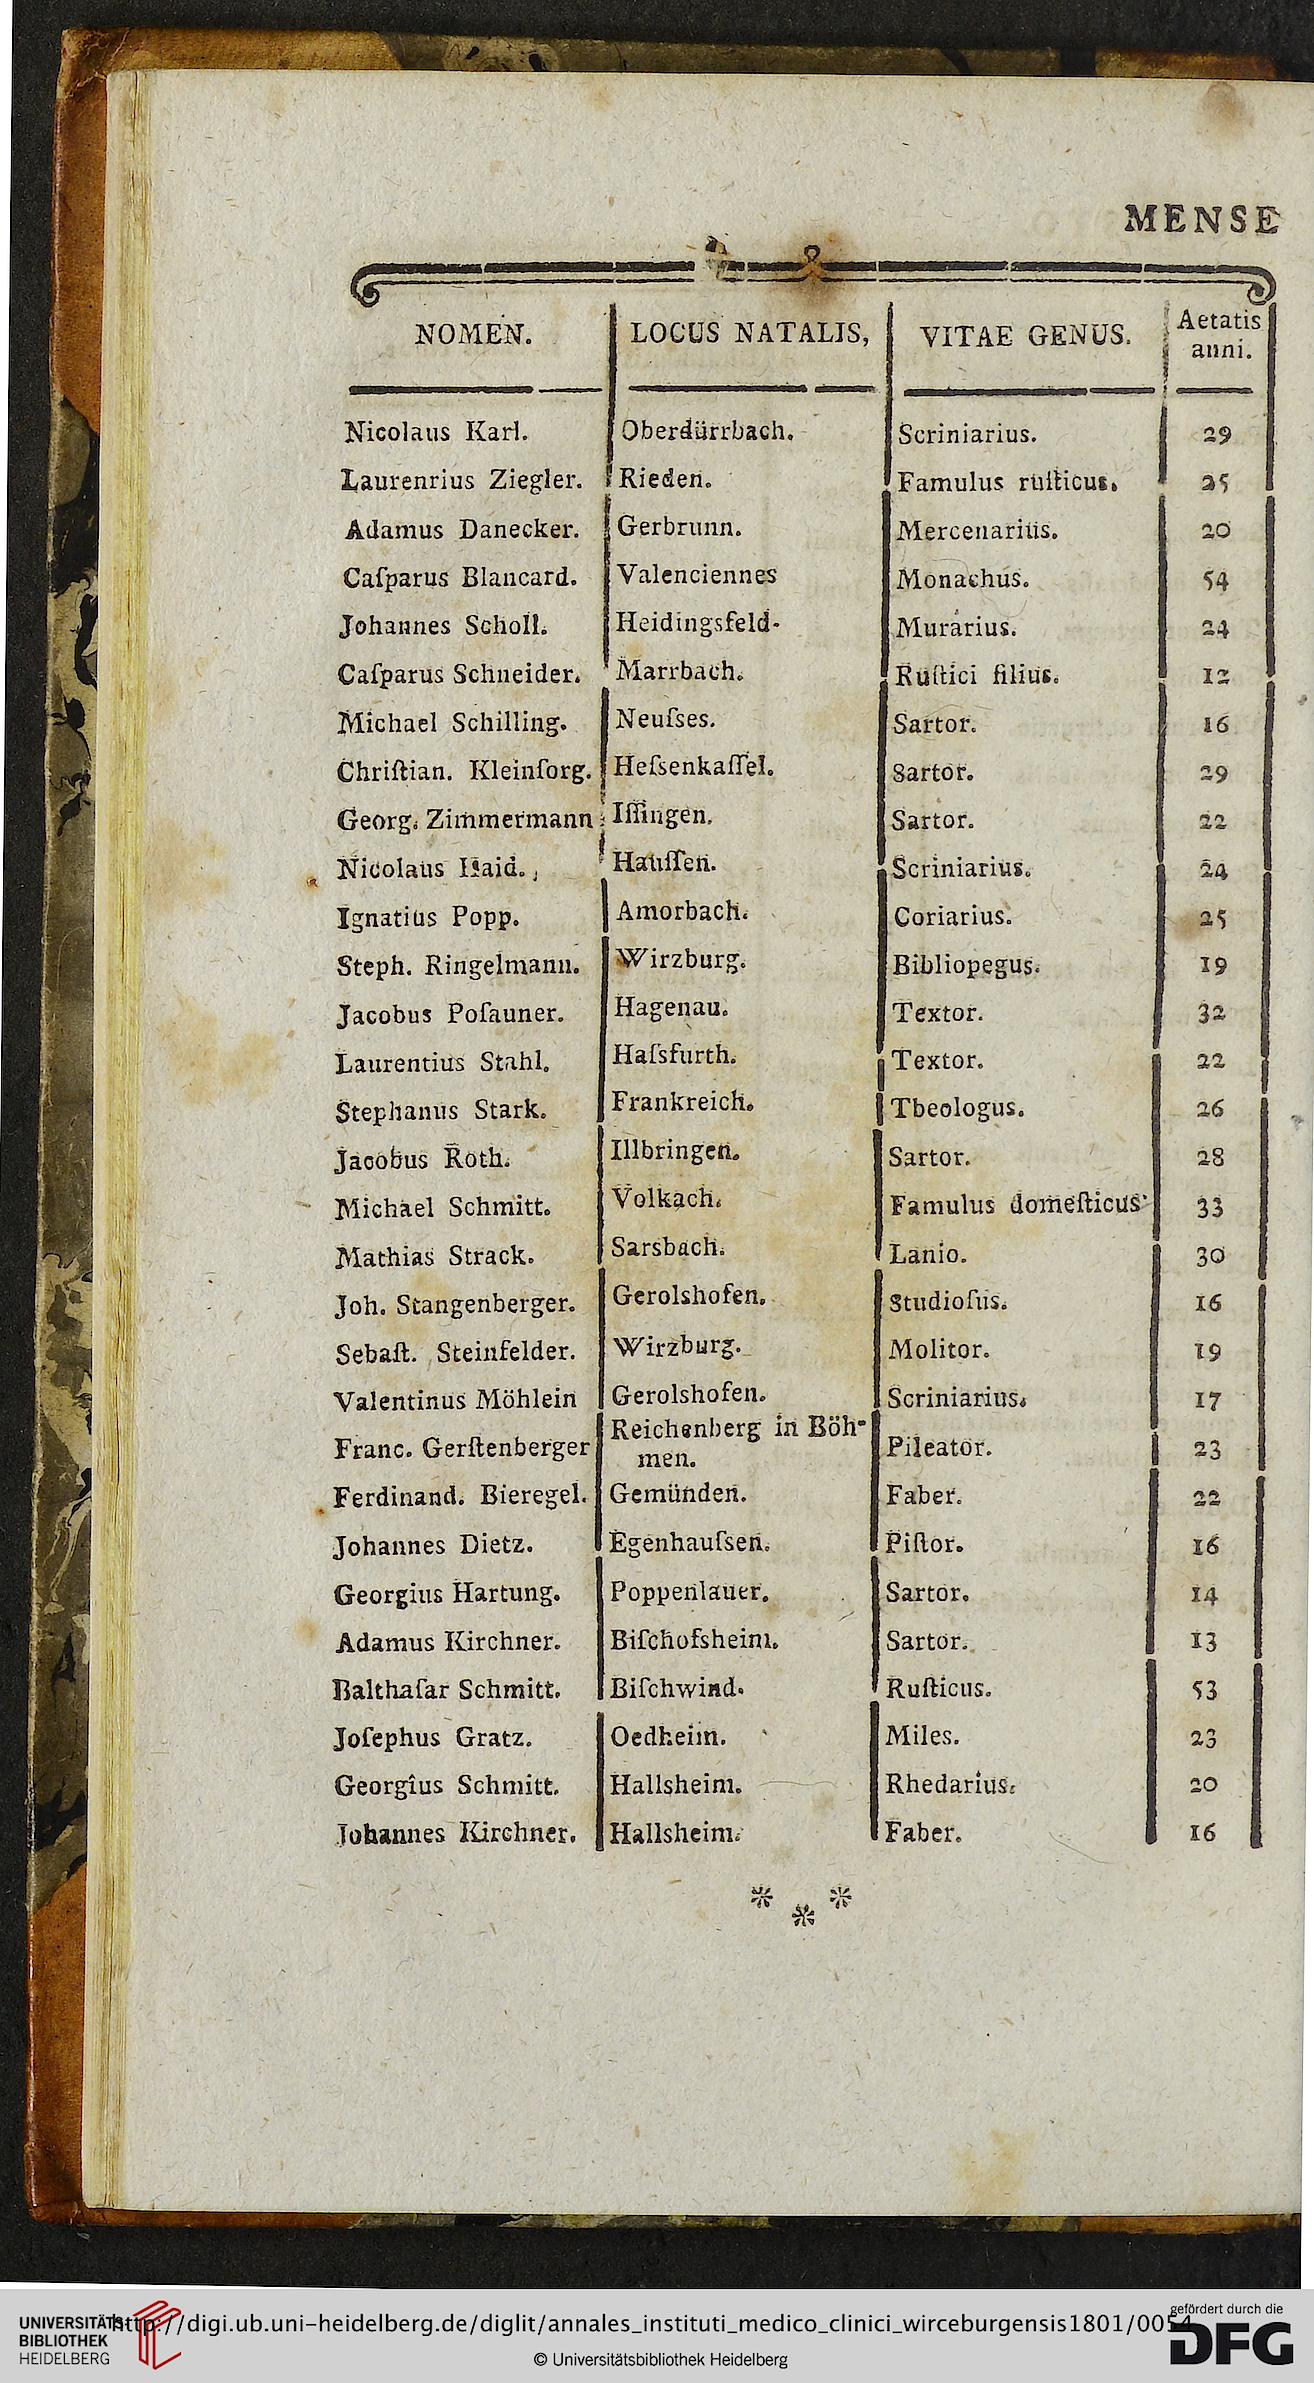 MENSE
NOMEN. LOCUS NATALIS, VITAE GENUS. Aetatis
anni.
Nicolaus Karl. Oberdürrbach. Scriniarius. 29
Laurenrius Ziegler. Rieden. Famulus ruſticus. 25
Adamus Danecker. Gerbrunn. Mercenarius. 20
Caſparus Blancard. Valenciennes Monachus. 54
Johannes Scholl. Heidingsfeld. Murarius. 24
Caſparus Schneider. Marrbach. Ruſtici filius. 12
Michael Schilling. Neuſses. Sartor. 16
Chriſtian. Kleinſorg. Heſsenkaſſel. Sartor. 29
Georg. Zimmermann Iſſingen. Sartor. 22
Nicolaus Haid. Hauſſen. Scriniarius. 24
Ignatius Popp. Amorbach. Coriarius. 25
Steph. Ringelmann. Wirzburg. Bibliopegus. 19
Jacobus Poſauner. Hagenau. Textor. 32
Laurentius Stahl. Haſsfurth. Textor. 22
Stephanus Stark. Frankreich. Tbeologus. 26
Jacobus Roth. Illbringen. Sartor. 28
Michael Schmitt. Volkach. Famulus domeſticus 33
Mathias Strack. Sarsbach. Lanio. 30
Joh. Stangenberger. Gerolshofen. Studioſus. 16
Sebaſt. Steinfelder. Wirzburg. Molitor. 19
Valentinus Möhlein Gerolshofen. Scriniarius. 17
Franc. Gerſtenberger Reichenberg in Böh-
men. Pileator. 23
Ferdinand. Bieregel. Gemünden. Faber. 22
Johannes Dietz. Egenhauſsen. Piſtor. 16
Georgius Hartung. Poppenlauer. Sartor. 14
Adamus Kirchner. Biſchofsheim. Sartor. 13
Balthaſar Schmitt. Biſchwind. Ruſticus. 53
Joſephus Gratz. Oedheim. Miles. 23
Georgîus Schmitt. Hallsheim. Rhedarius. 20
Johannes Kirchner. Hallsheim. Faber. 16
* * *
UNIVERSITÄTS-
BIBLIOTHEK
HEIDELBERG
http://digi.ub.uni-heidelberg.de/diglit/annales_instituti_medico_clinici_wirceburgensis1801/0054
© Universitätsbibliothek Heidelberg
gefördert durch die
DFG